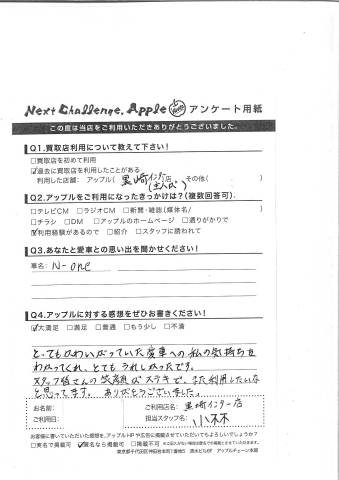 Next Challenge. Apple アンケート用紙
この度は当店をご利用いただきありがとうございました。
Q1.買取店利用について教えて下さい!
□買取店を初めて利用
☑過去に買取店を利用したことがある
利用した店舗: アップル( 黒崎インター店 その他( )
Q2.アップルをご利用になったきっかけは?(複数回答可).
□テレビCM □ラジオCM □新聞・雑誌(媒体名/ )
□チラシ □DM □アップルのホームページ □通りがかりで
☑利用経験があるので □紹介 □スタッフに誘われて
Q3.あなたと愛車との思い出を聞かせください!
車名: N-one
Q4.アップルに対する感想をぜひお書きください!
☑大満足 □満足 □普通 □もう少し □不満
とってもかわいがっていた愛車への私の気持ちを
わかってくれ、とてもうれしかったです。
スタッフ皆さんの笑顔がステキで、また利用したいな
と思ってます。ありがとうございました。
お名前: ご利用店名: 黒崎インター店
ご利用日: 担当スタッフ名: 小林
お客様に書いていただいた感想を、アップルHPや広告に掲載させていただいてもよろしいでしょうか?
□実名で掲載可 ☑匿名なら掲載可 □掲載不可
東京都千代田区神田岩本町1番地5 清水ビル6F アップルチェーン本部